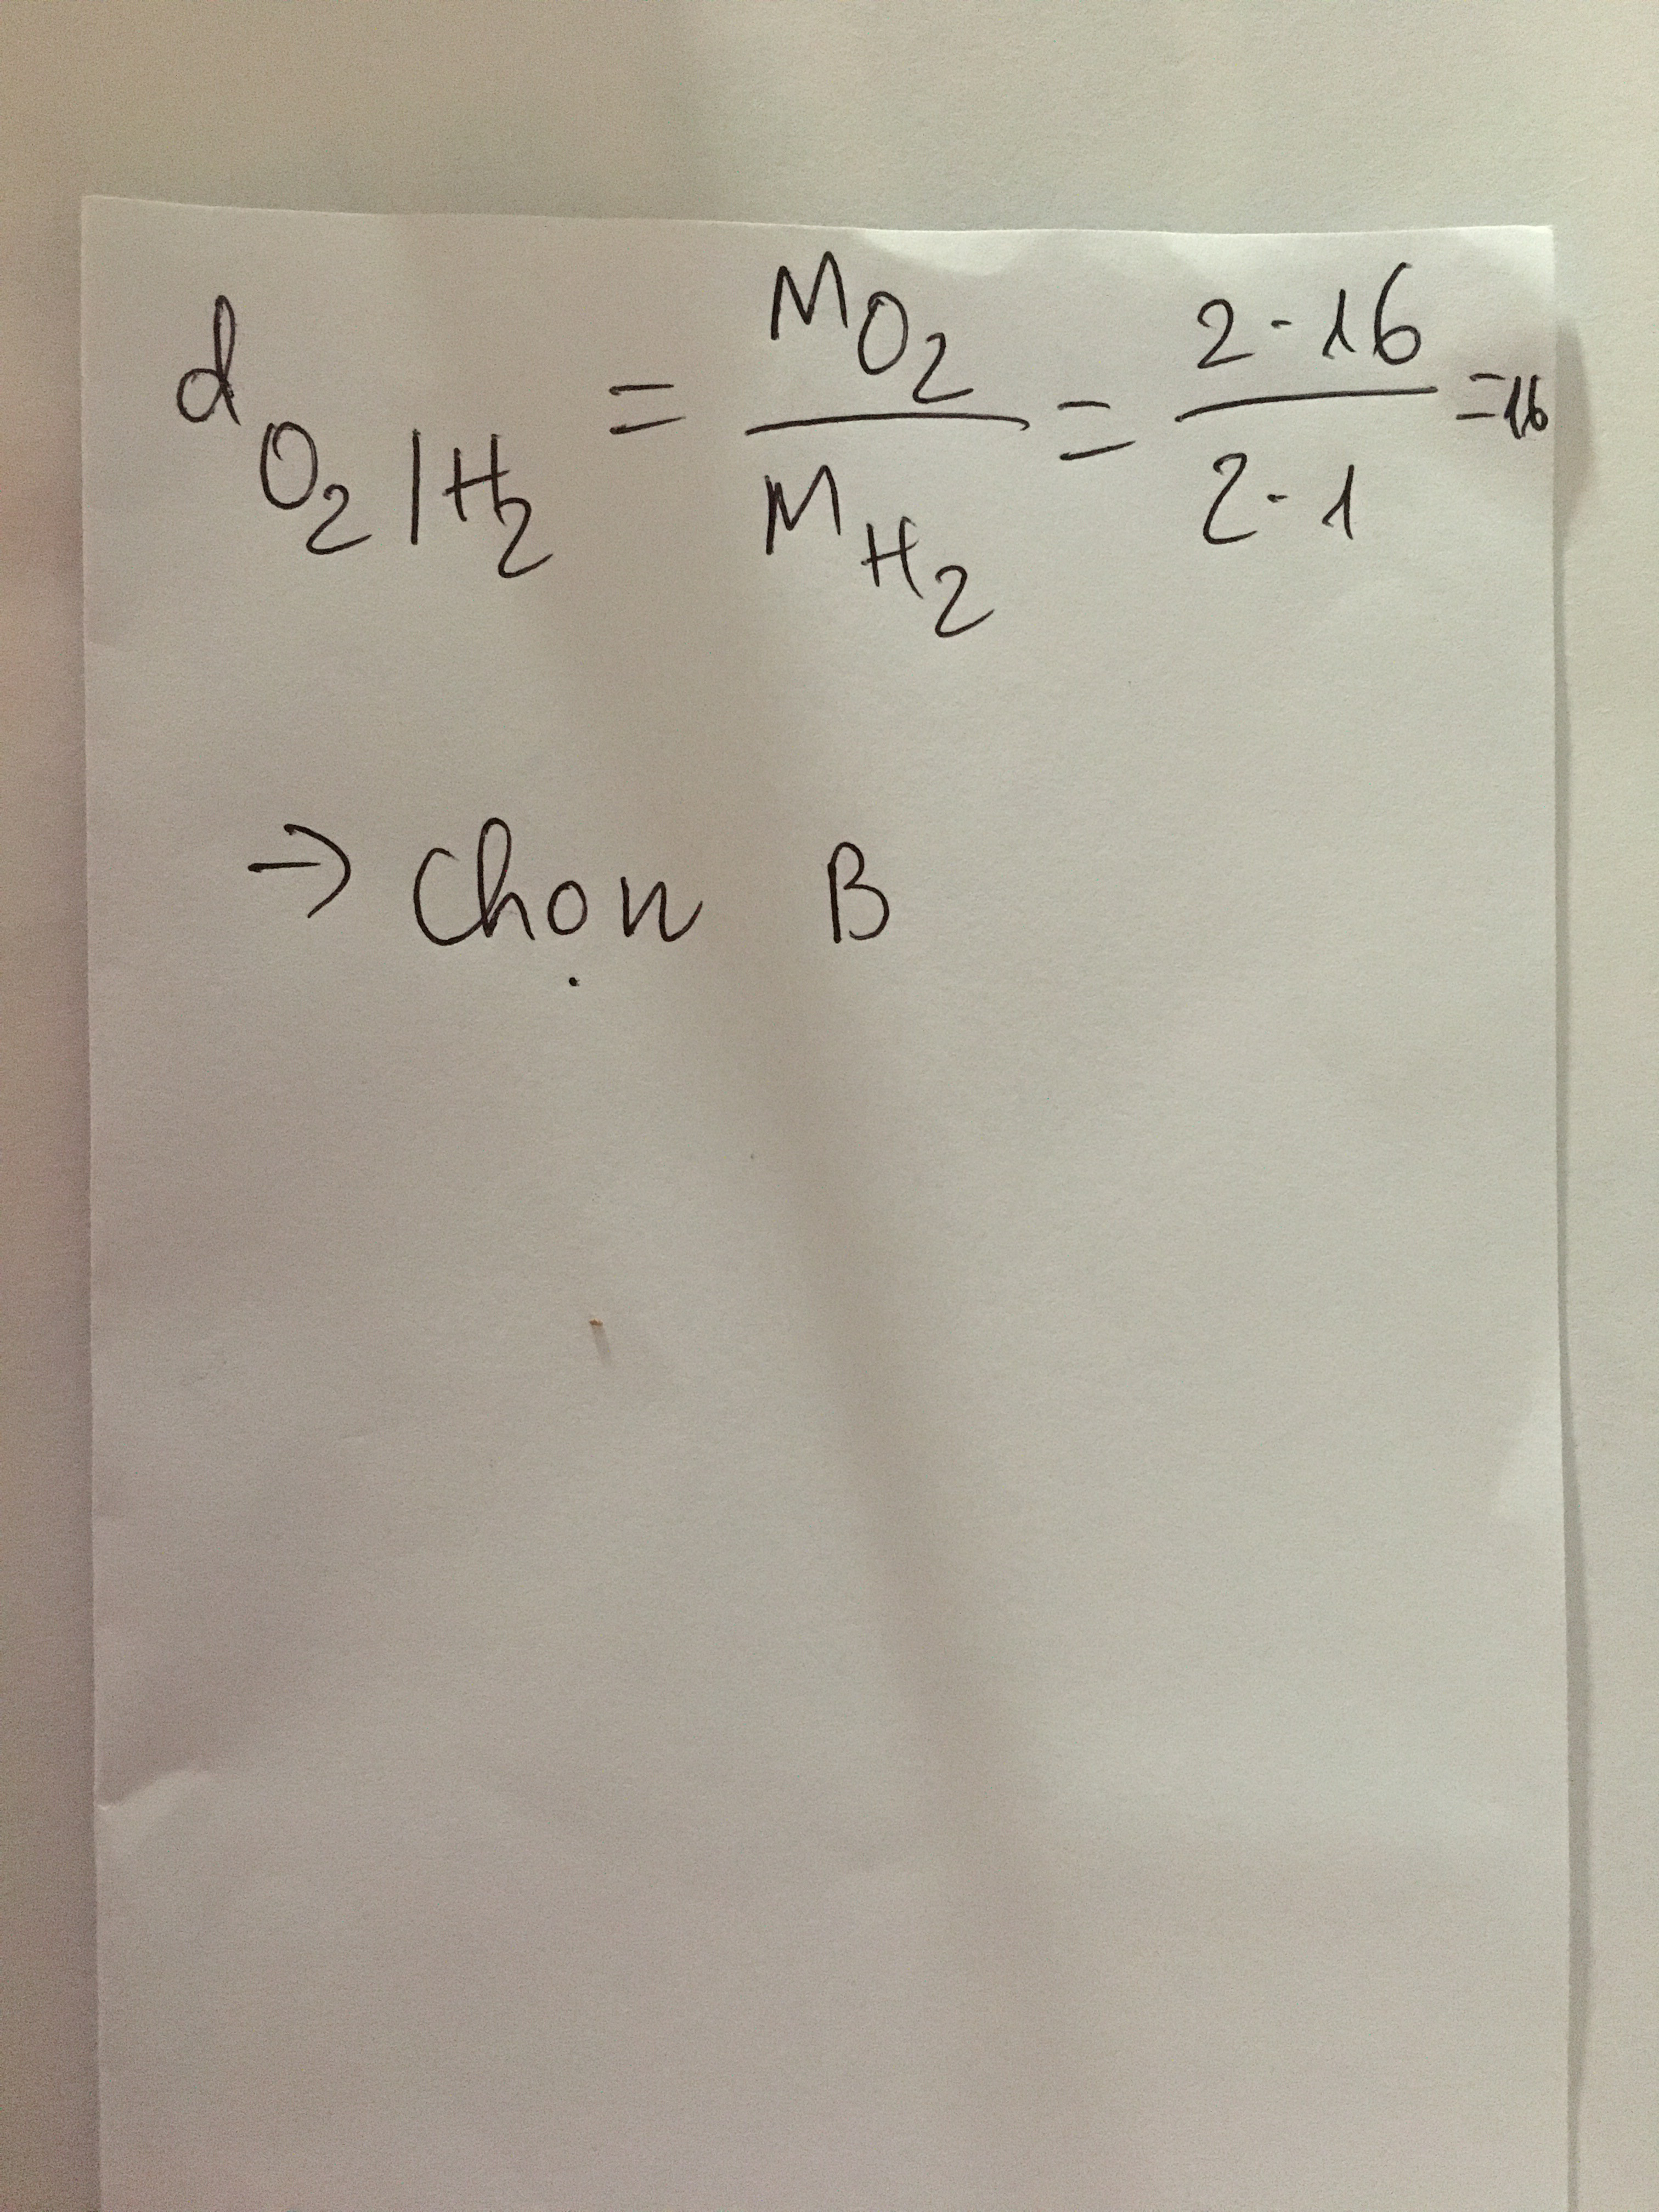 d O₂/H₂ = M O₂ / M H₂ = 2·16 / 2·1 = 16
→ Chọn B